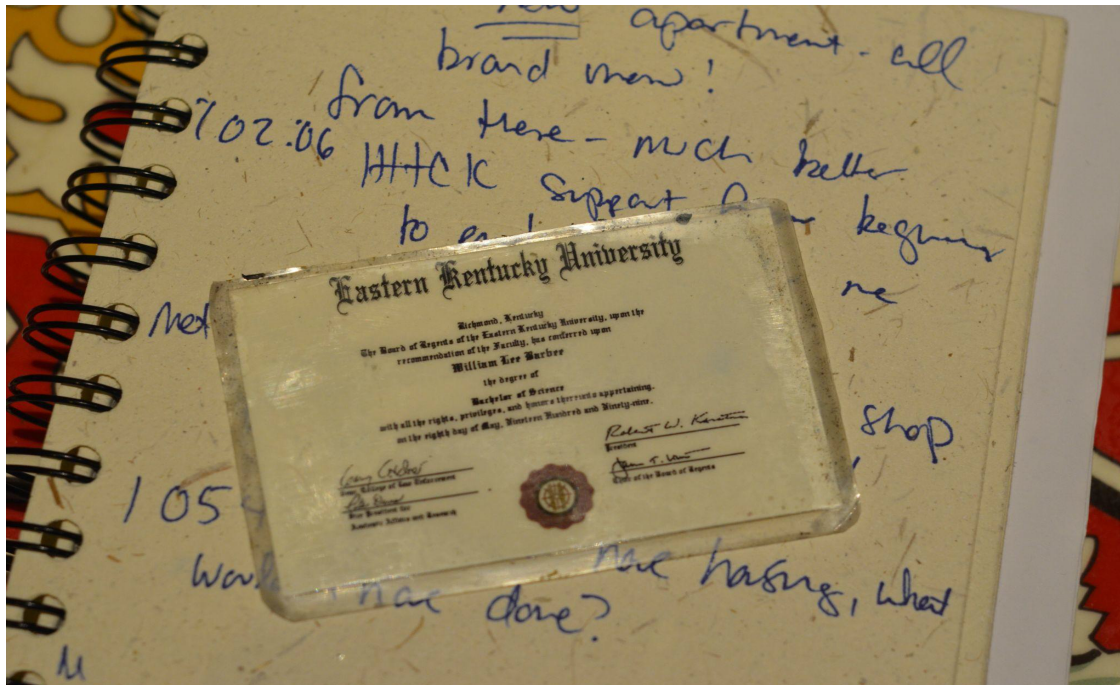 new apartment - all
brand new!
from there - much better
7 02:06
HHCK support
to beginning
me
Eastern Kentucky University
Richmond, Kentucky
The Board of Regents of the Eastern Kentucky University, upon the
recommendation of the Faculty, has conferred upon
William Lee Barbee
the degree of
Bachelor of Science
with all the rights, privileges, and honors thereunto appertaining,
on the eighth day of May, Nineteen Hundred and Ninety-nine.
Robert W.
President
Clerk of the Board of Regents
Dean, College of Law Enforcement
Vice President for
Academic Affairs and Research
shop
1 05
have housing, what
have done?